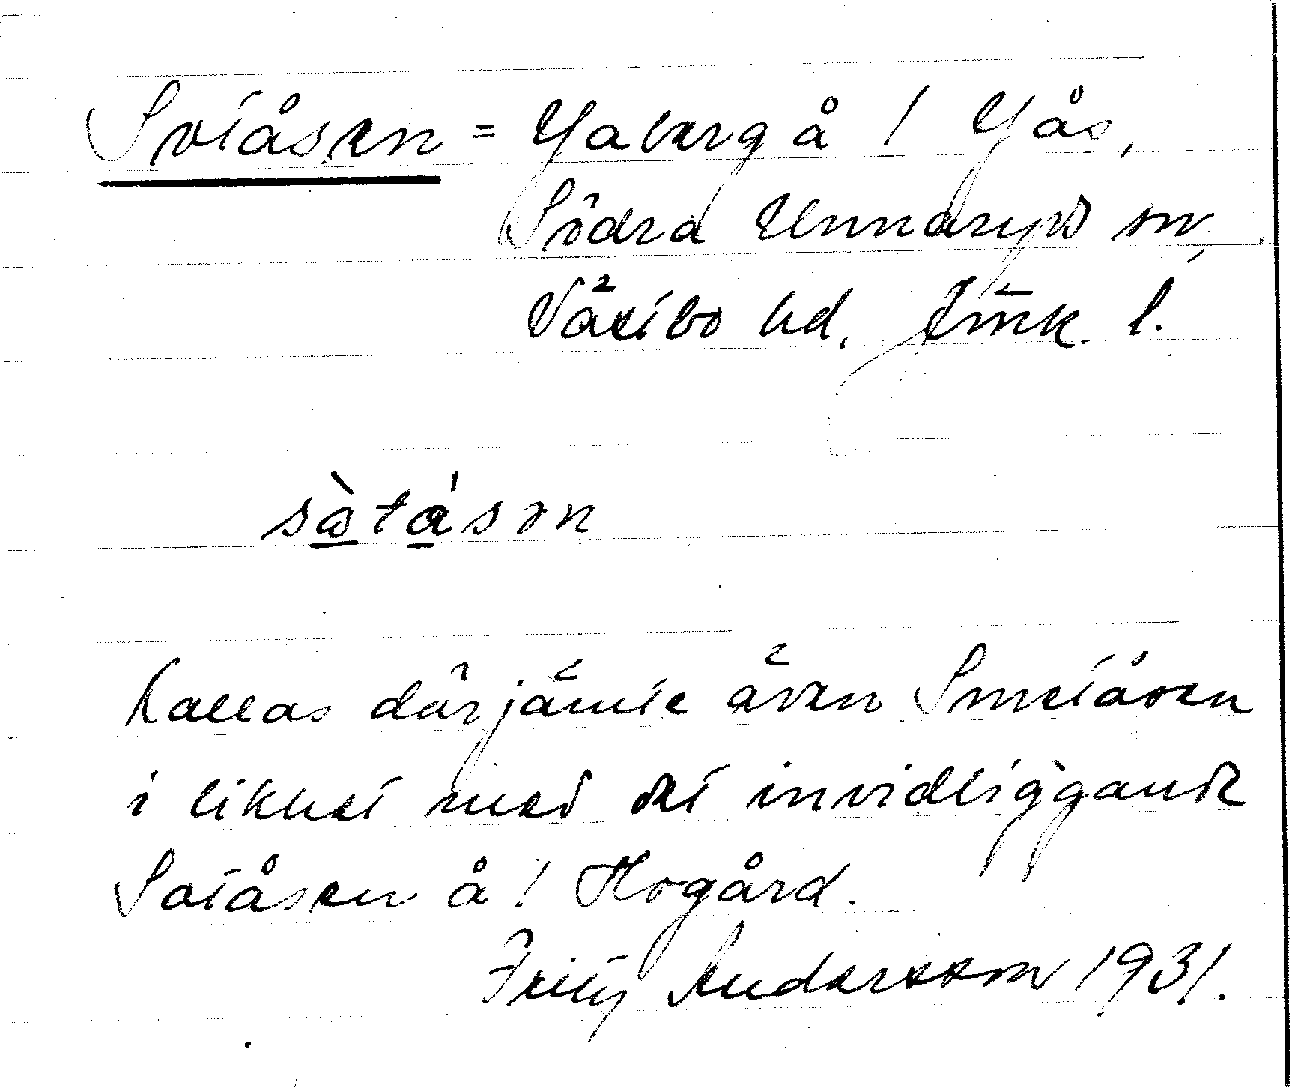 Sotåsen = Gaberg å 1 Gås,
Södra Unnaryds sn,
Västbo hd. Jönk. l.
sàtáson
Kallas därjämte även Smetåsen
i likhet med det invidliggande
Sotåsen å 1 Hogård.
Fritz Andersson 1931.